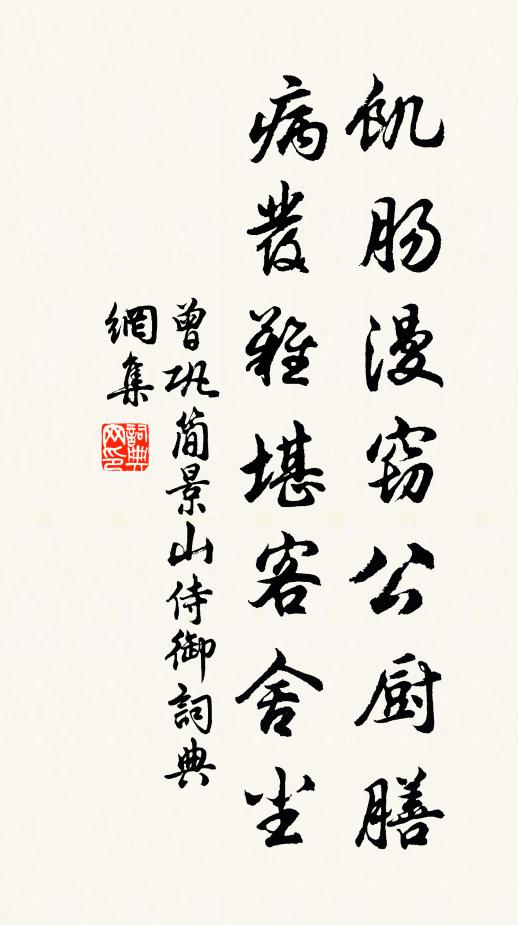 飢肠漫窃公厨膳
病發難堪客舍尘
曾巩简景山侍御詞典
網集
詞典
网印